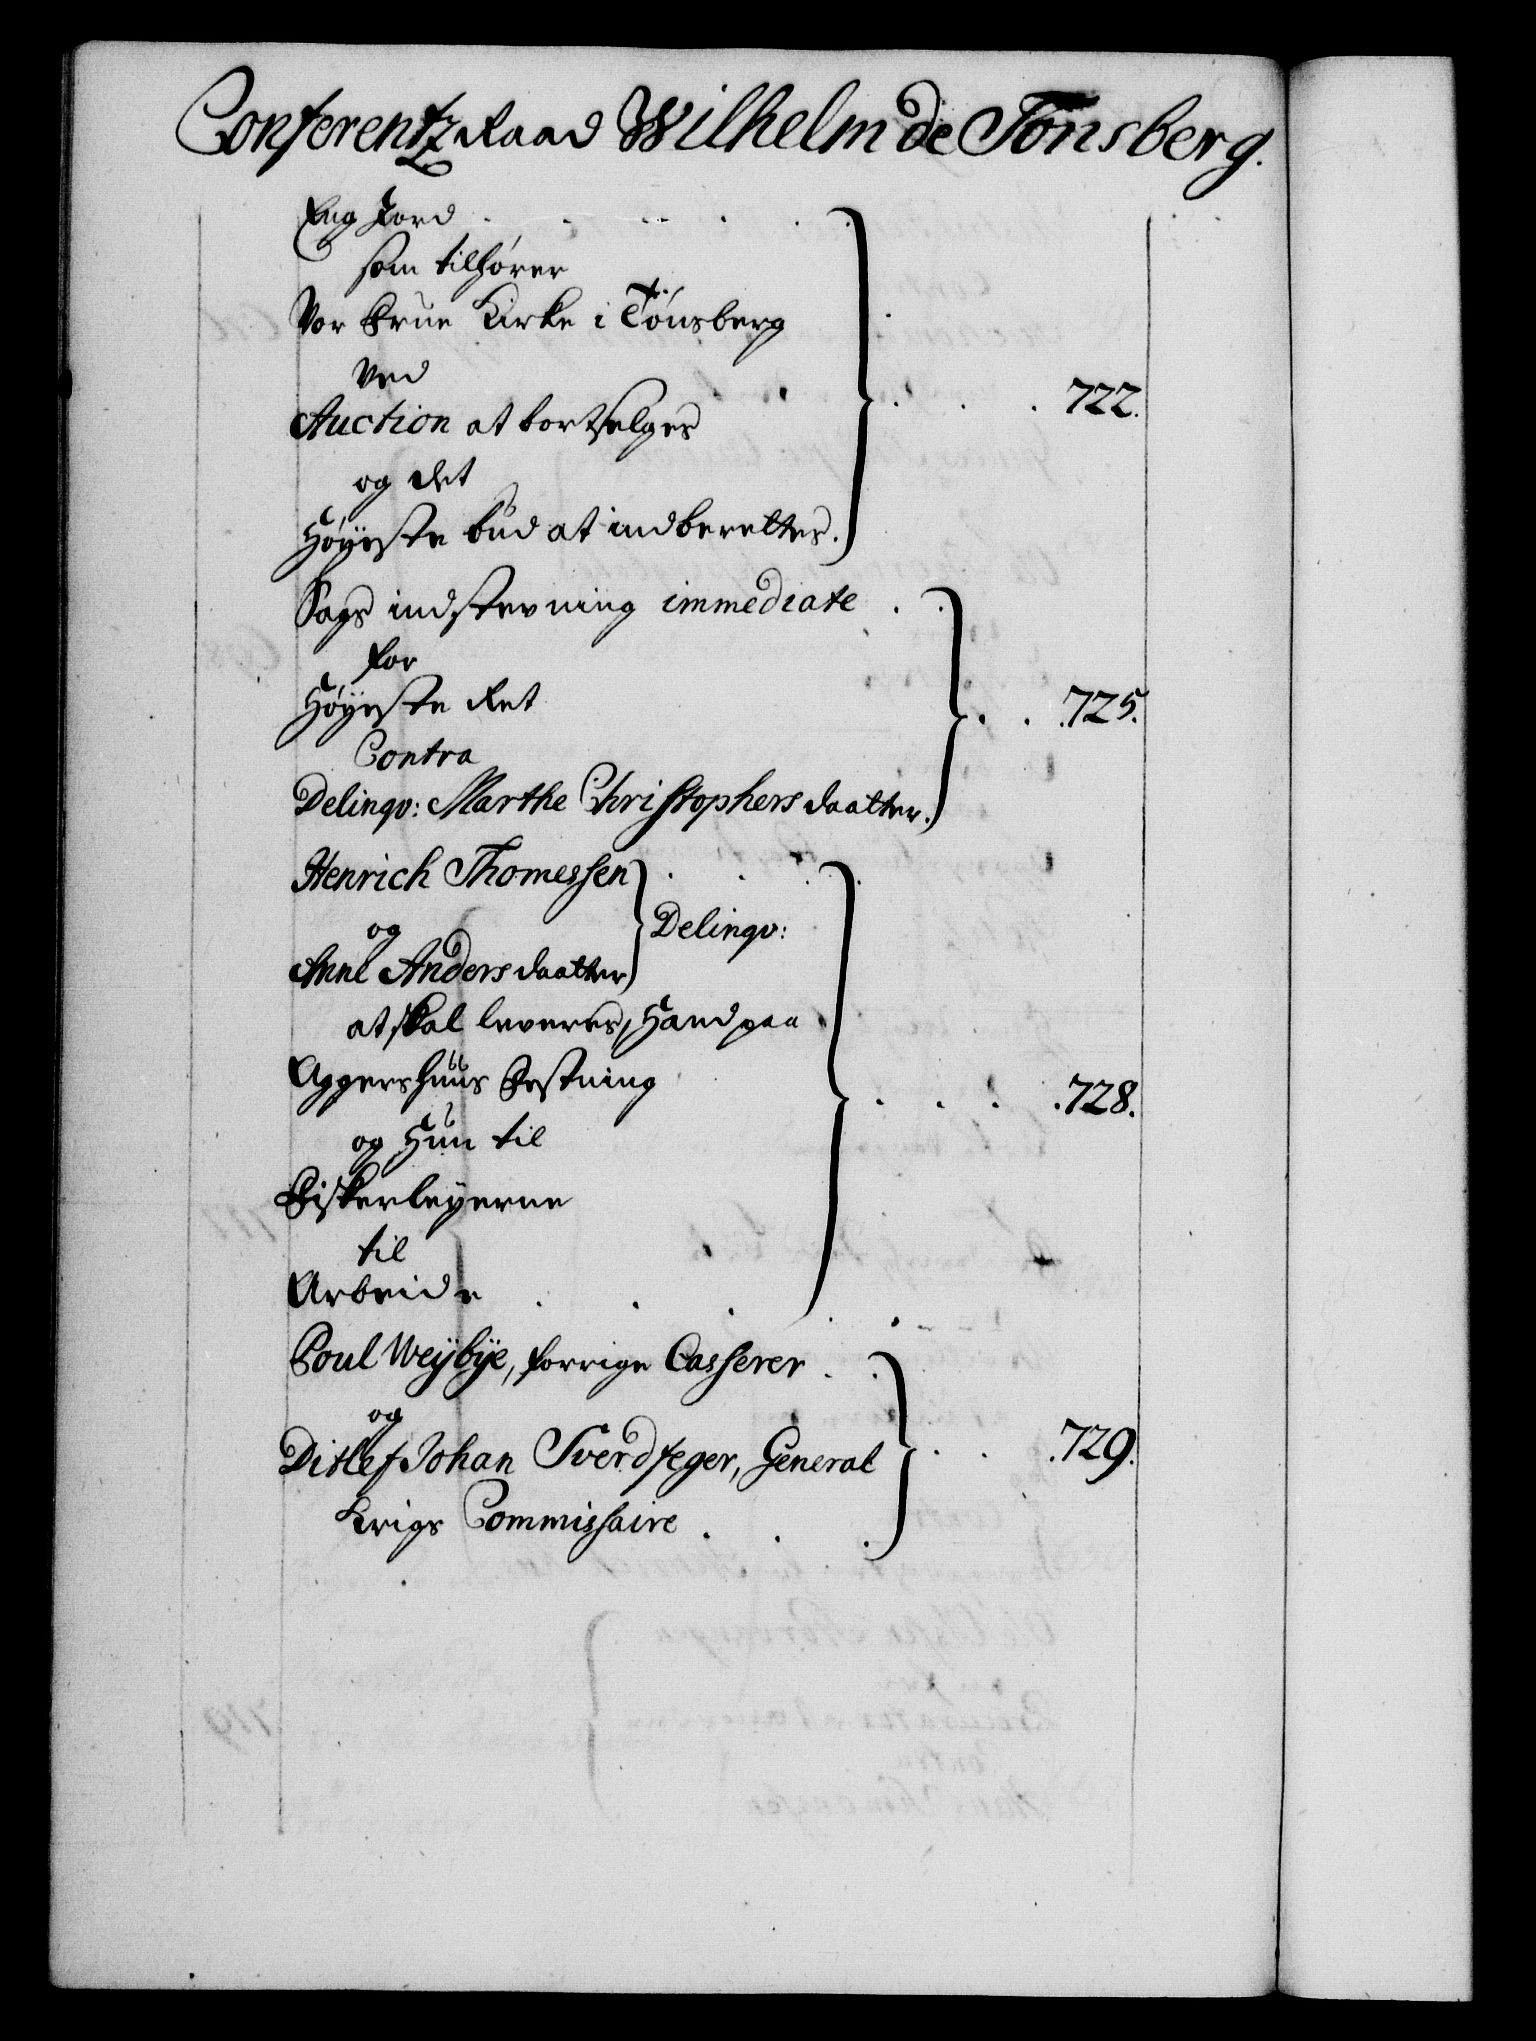 Conferentz Raad Wilhelm de Tonsberg.
Eng Jord
som tilhører
Vor Frue Kirke i Tönsberg
ved
Auction at bortselges
og det
Høyeste bud at indberettes.
722.
Sags indstevning immediate
for
Høyeste Ret
Contra
Delinqv: Marthe Christophers daatter.
725.
Henrich Thomessen
og
Delinqv:
Anne Anders daatter
at skal leveres, Hand paa
Aggershuus Festning
og Hun til
Fiskerleyerne
til
Arbeide
728.
Poul Weybye, forrige Casserer
og
Ditlef Johan Sverdfeger, General
Krigs Commissaire
729.